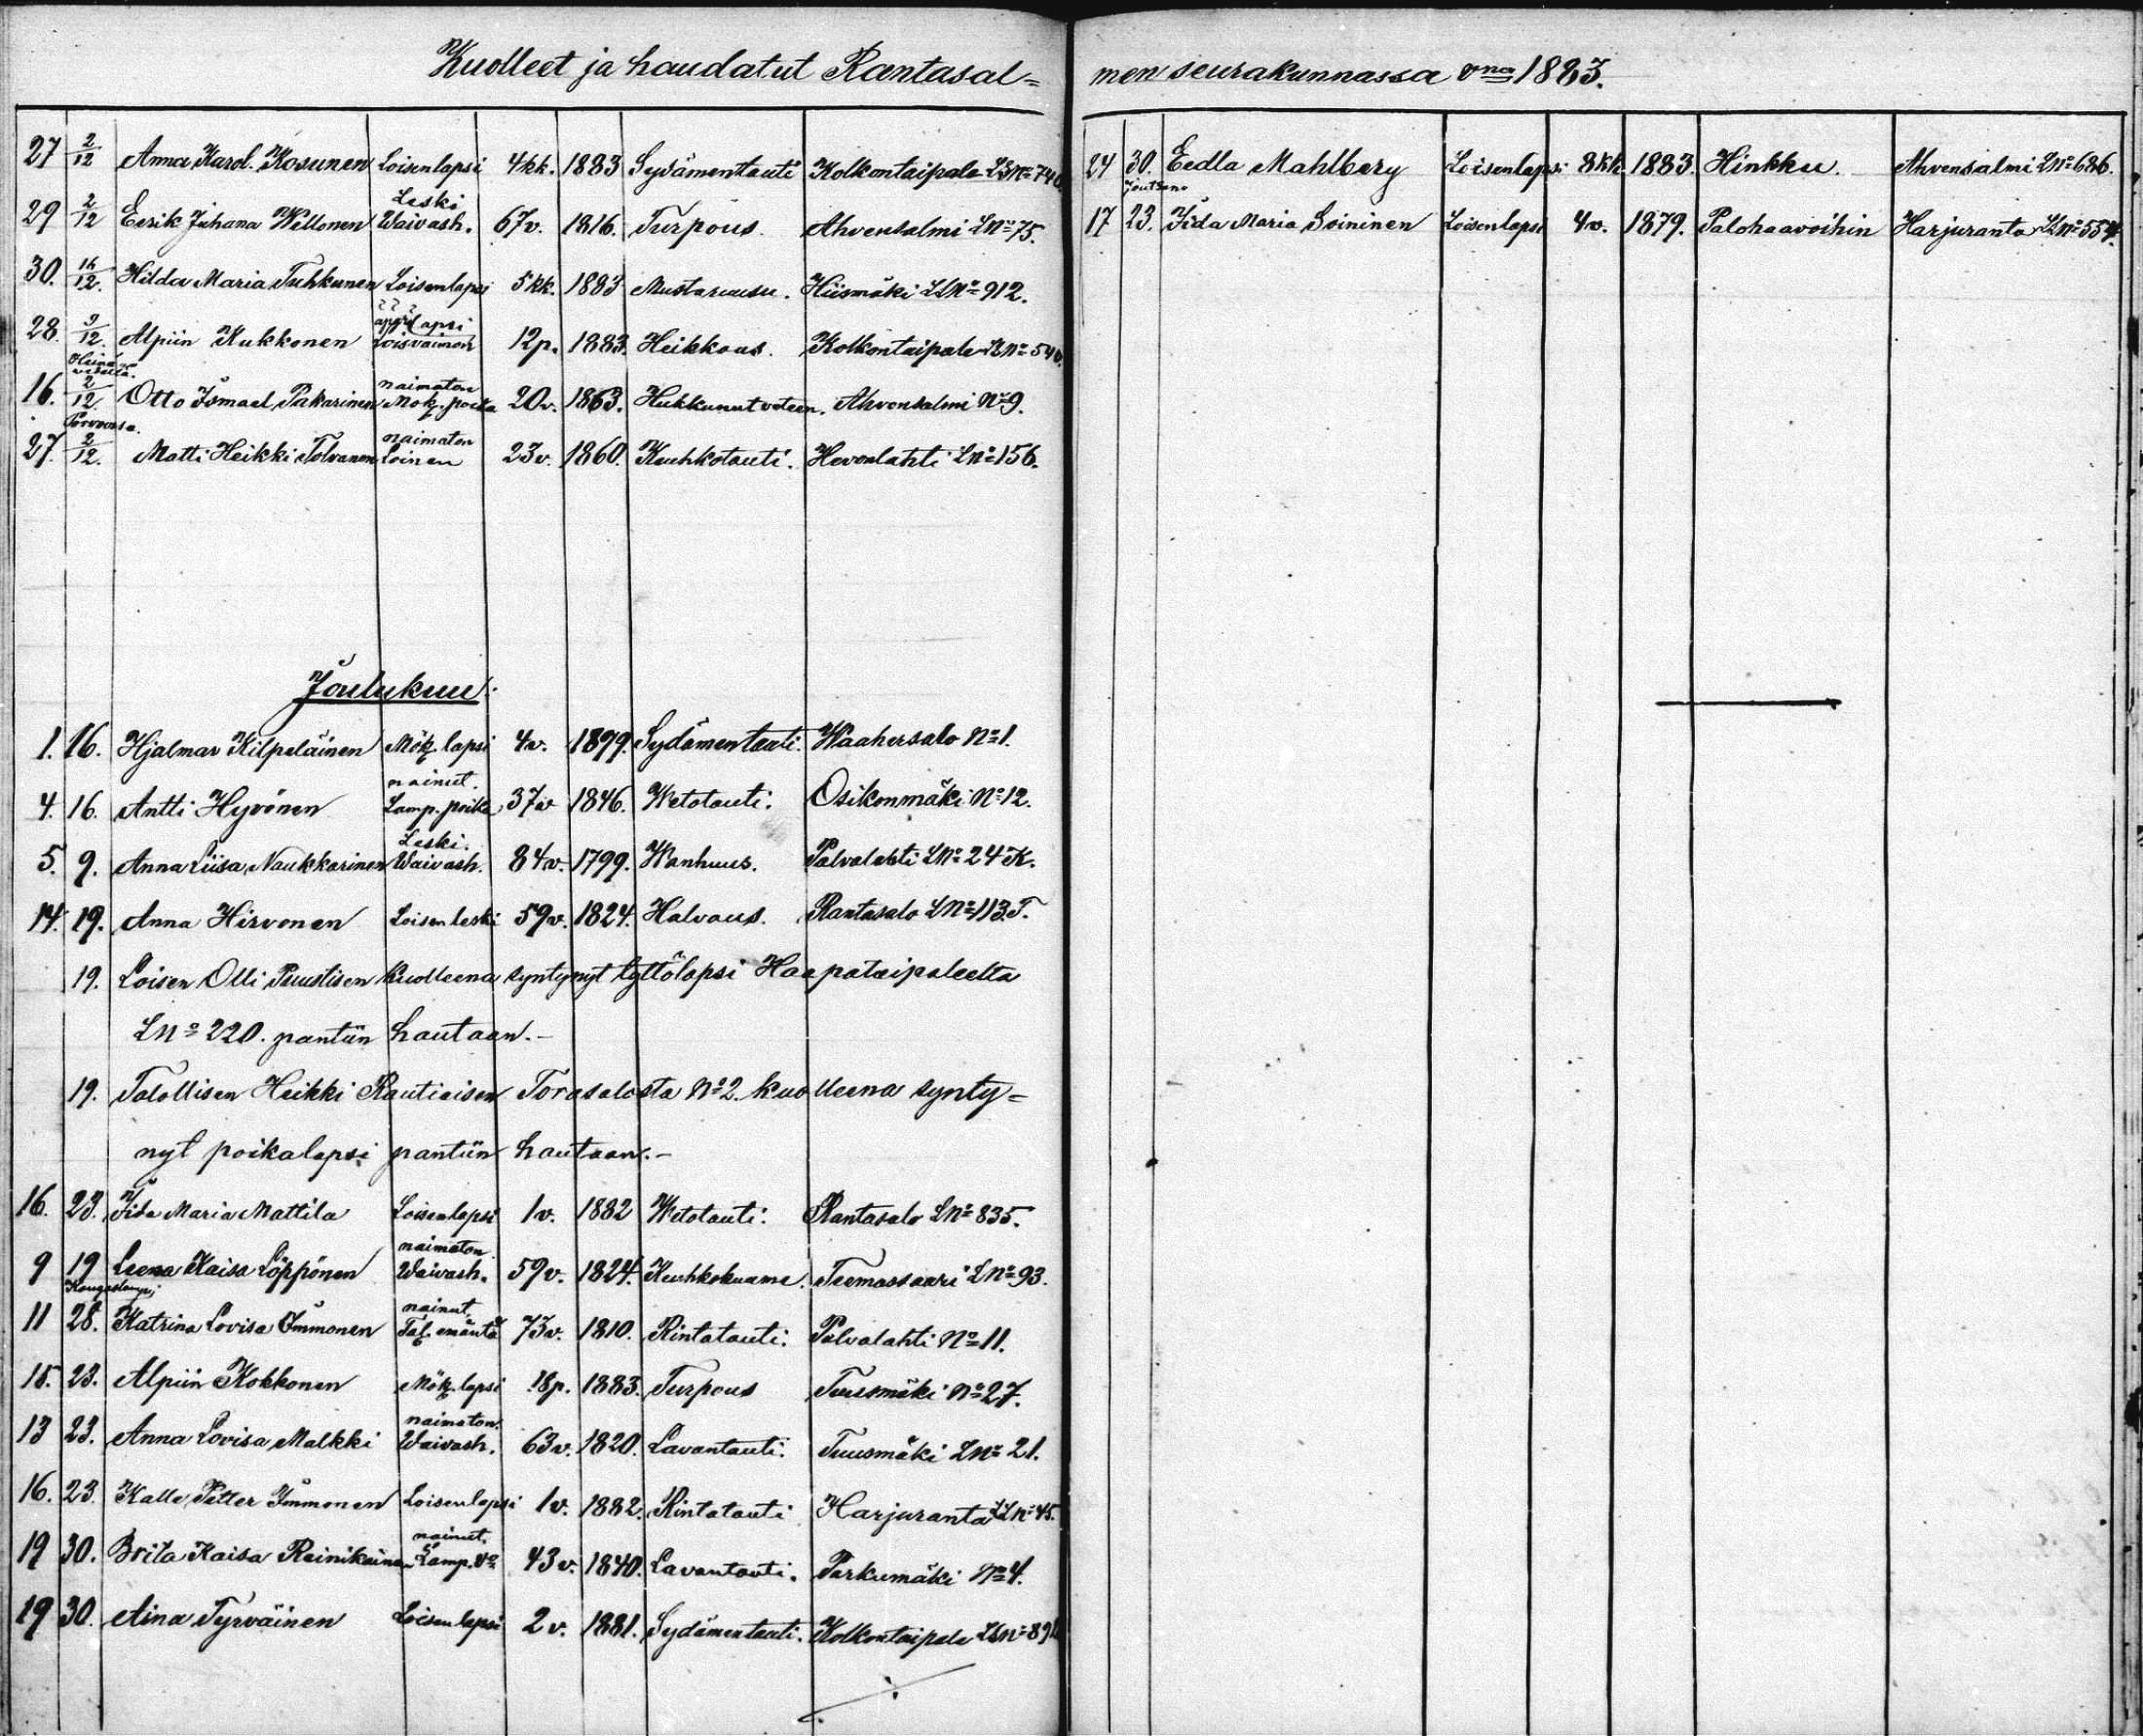 Kuolleet ja haudatut Rantasal=
27 2/12 Anna Karol. Kosunen Loisenlapsi 4kk. 1883 Sydämentauti Kolkontaipale LLNo 740
29 2/12 Eerik Juhana Willonen Leski Waivash. 67v. 1816. Turpous. Ahvensalmi LNo 75.
30. 16/12. Hilda Maria Tuhkunen Loisenlapsi 5kk. 1883 Mustaruusu. Hiismäki LLNo 912.
28. 9/12. Alpiin Kukkonen äpärälapsi Loisvaimon 12p. 1883. Heikkous. Kolkontaipale LLNo 540.
Heinävedellä.
16. 2/12. Otto Ismael Pakarinen naimaton Mök. poika 20v. 1863. Hukkunut veteen. Ahvensalmi No 9.
Porvoossa.
27. 2/12. Matti Heikki Tolvanen naimaton Loinen 23v. 1860. Keuhkotauti. Hevonlahti LNo 156.
Joulukuu.
1. 16. Hjalmar Kilpeläinen Mök. lapsi 4v. 1879. Sydämentauti. Waahersalo No 1.
4. 16. Antti Hyvönen nainut. Lamp. poika 37v 1846. Wetotauti. Osikonmäki No 12.
5. 9. Anna Liisa Naukkarinen Leski. Waivash. 84v. 1799. Wanhuus. Palvalahti LNo 24 K.
14. 19. Anna Hirvonen Loisen leski 59v. 1824. Halvaus. Rantasalo LNo 113. T.
19. Loisen Olli Puustisen kuolleena syntynyt tyttölapsi Haapataipaleelta
LNo 220. pantiin hautaan.-
19. Talollisen Heikki Rautiaisen Torasalosta No 2. kuolleena synty=
nyt poikalapsi pantiin hautaan.-
16. 23. Iida Maria Mattila Loisenlapsi 1v. 1882 Wetotauti. Rantasalo LNo 835.
9 19 Leena Kaisa Löppönen naimaton. Waivash. 59v. 1824. Keuhkokuume. Teemassaari LNo 93.
Kangaslampi
11 28. Katrina Lovisa Immonen nainut. Tal. emäntä 73v. 1810. Rintatauti. Palvalahti No 11.
15. 23. Alpiin Kokkonen Mök. lapsi 18p. 1883. Turpous Tuusmäki No 27.
13 23. Anna Lovisa Malkki naimaton. Waivash. 63v. 1820. Lavantauti. Tuusmäki LNo 21.
16. 23. Kalle Petter Immonen Loisenlapsi 1v. 1882. Rintatauti Harjuranta LLNo 45.
19 30. Brita Kaisa Reinikainen nainut. Lamp. vo 43v. 1840. Lavantauti. Parkumäki No 4.
19 30. Aina Tyrväinen Loisenlapsi 2v. 1881. Sydämentauti. Kolkontaipale LLNo
men seurakunnassa vna 1883.
24 30. Eedla Mahlberg Loisenlapsi 8kk. 1883. Hinkku. Ahvensalmi LNo 686.
Joutseno
17 23. Iida Maria Soininen Loisenlapsi 4v. 1879. Palohaavoihin Harjuranta LLNo 554.